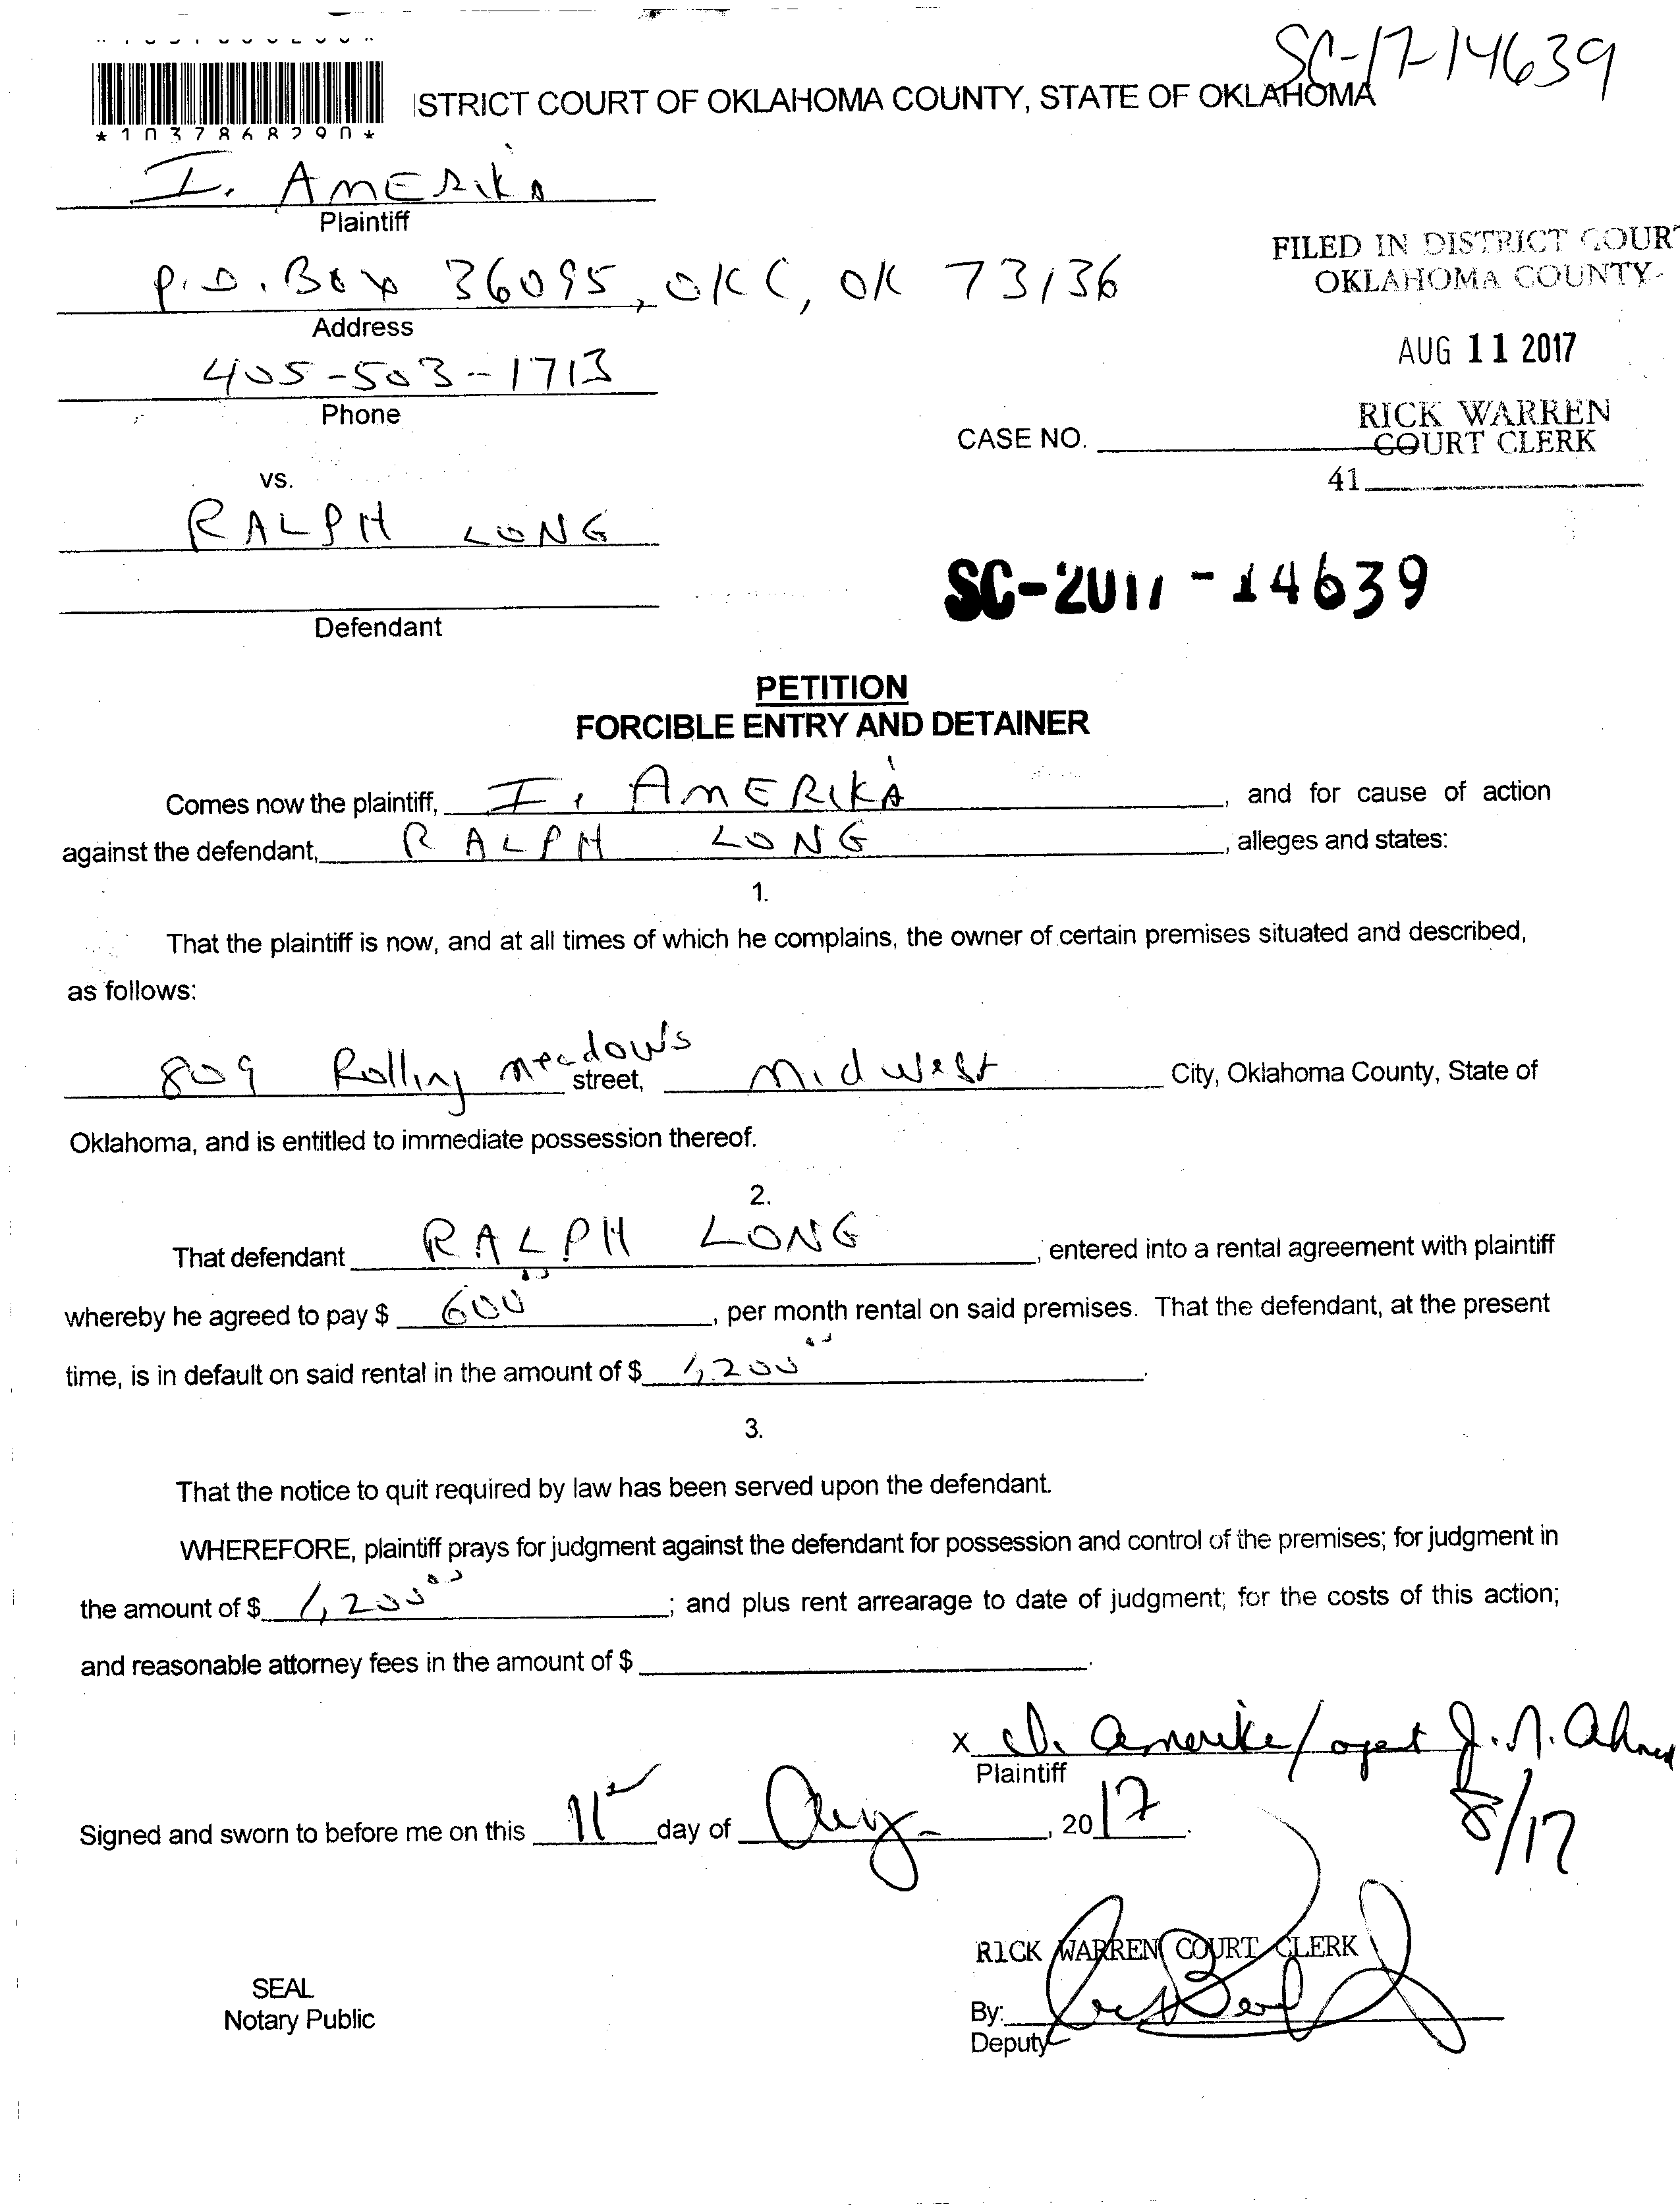 SC-17-14639
*1037868290*
ISTRICT COURT OF OKLAHOMA COUNTY, STATE OF OKLAHOMA
I. AMERIKA
Plaintiff
P.O. Box 36095, OKC, OK 73136
Address
405-503-1713
Phone
FILED IN DISTRICT COURT
OKLAHOMA COUNTY
AUG 11 2017
RICK WARREN
COURT CLERK
41
CASE NO.
vs.
RALPH LONG
Defendant
SC-2017-14639
PETITION
FORCIBLE ENTRY AND DETAINER
Comes now the plaintiff, I. AMERIKA, and for cause of action
against the defendant, RALPH LONG, alleges and states:
1.
That the plaintiff is now, and at all times of which he complains, the owner of certain premises situated and described,
as follows:
809 Rolling meadows street, Midwest City, Oklahoma County, State of
Oklahoma, and is entitled to immediate possession thereof.
2.
That defendant RALPH LONG, entered into a rental agreement with plaintiff
whereby he agreed to pay $ 600 00, per month rental on said premises. That the defendant, at the present
time, is in default on said rental in the amount of $ 1,200 00.
3.
That the notice to quit required by law has been served upon the defendant.
WHEREFORE, plaintiff prays for judgment against the defendant for possession and control of the premises; for judgment in
the amount of $ 1,200 00; and plus rent arrearage to date of judgment; for the costs of this action;
and reasonable attorney fees in the amount of $
x I. Amerika/agent J. N. Ahmed
Plaintiff
8/17
Signed and sworn to before me on this 11 day of Aug, 2017.
RICK WARREN COURT CLERK
SEAL
Notary Public
By:
Deputy